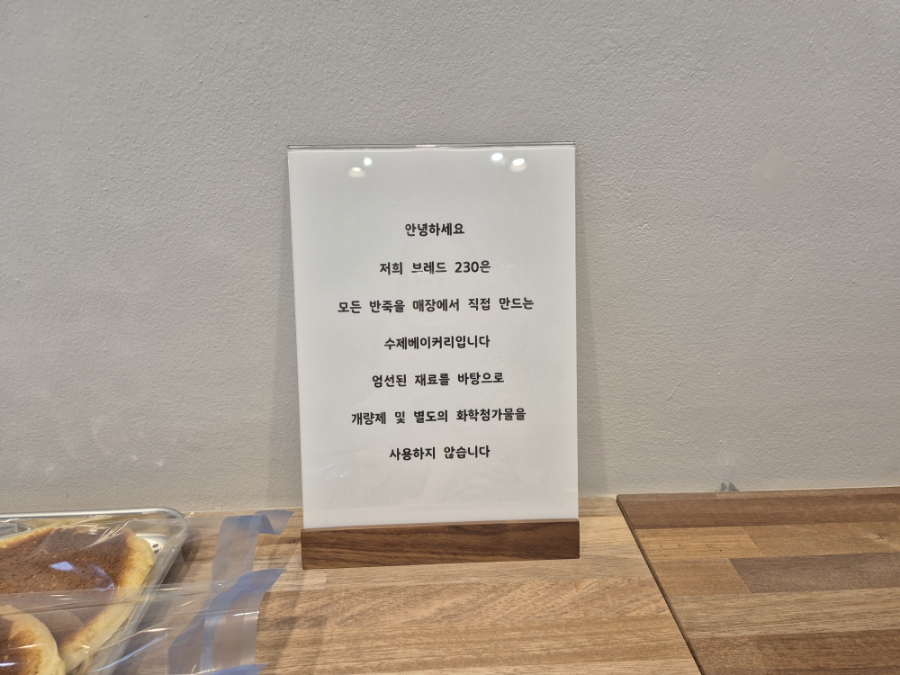 안녕하세요
저희 브레드 230은
모든 반죽을 매장에서 직접 만드는
수제베이커리입니다
엄선된 재료를 바탕으로
개량제 및 별도의 화학첨가물을
사용하지 않습니다